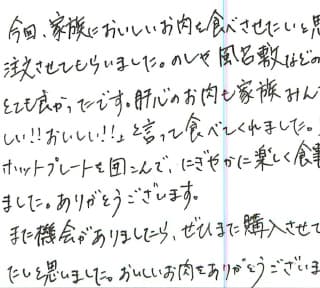 今回、家族においしいお肉を食べさせたいと思
注文させてもらいました。のしや風呂敷などの
とても良かったです。肝心のお肉も家族みん
しい!!おいしい!!」と言って食べてくれました。
ホットプレートを囲こんで、にぎやかに楽しく食事
ました。ありがとうございます。
また機会がありましたら、ぜひまた購入させて
たいと思いました。おいしいお肉をありがとうございま